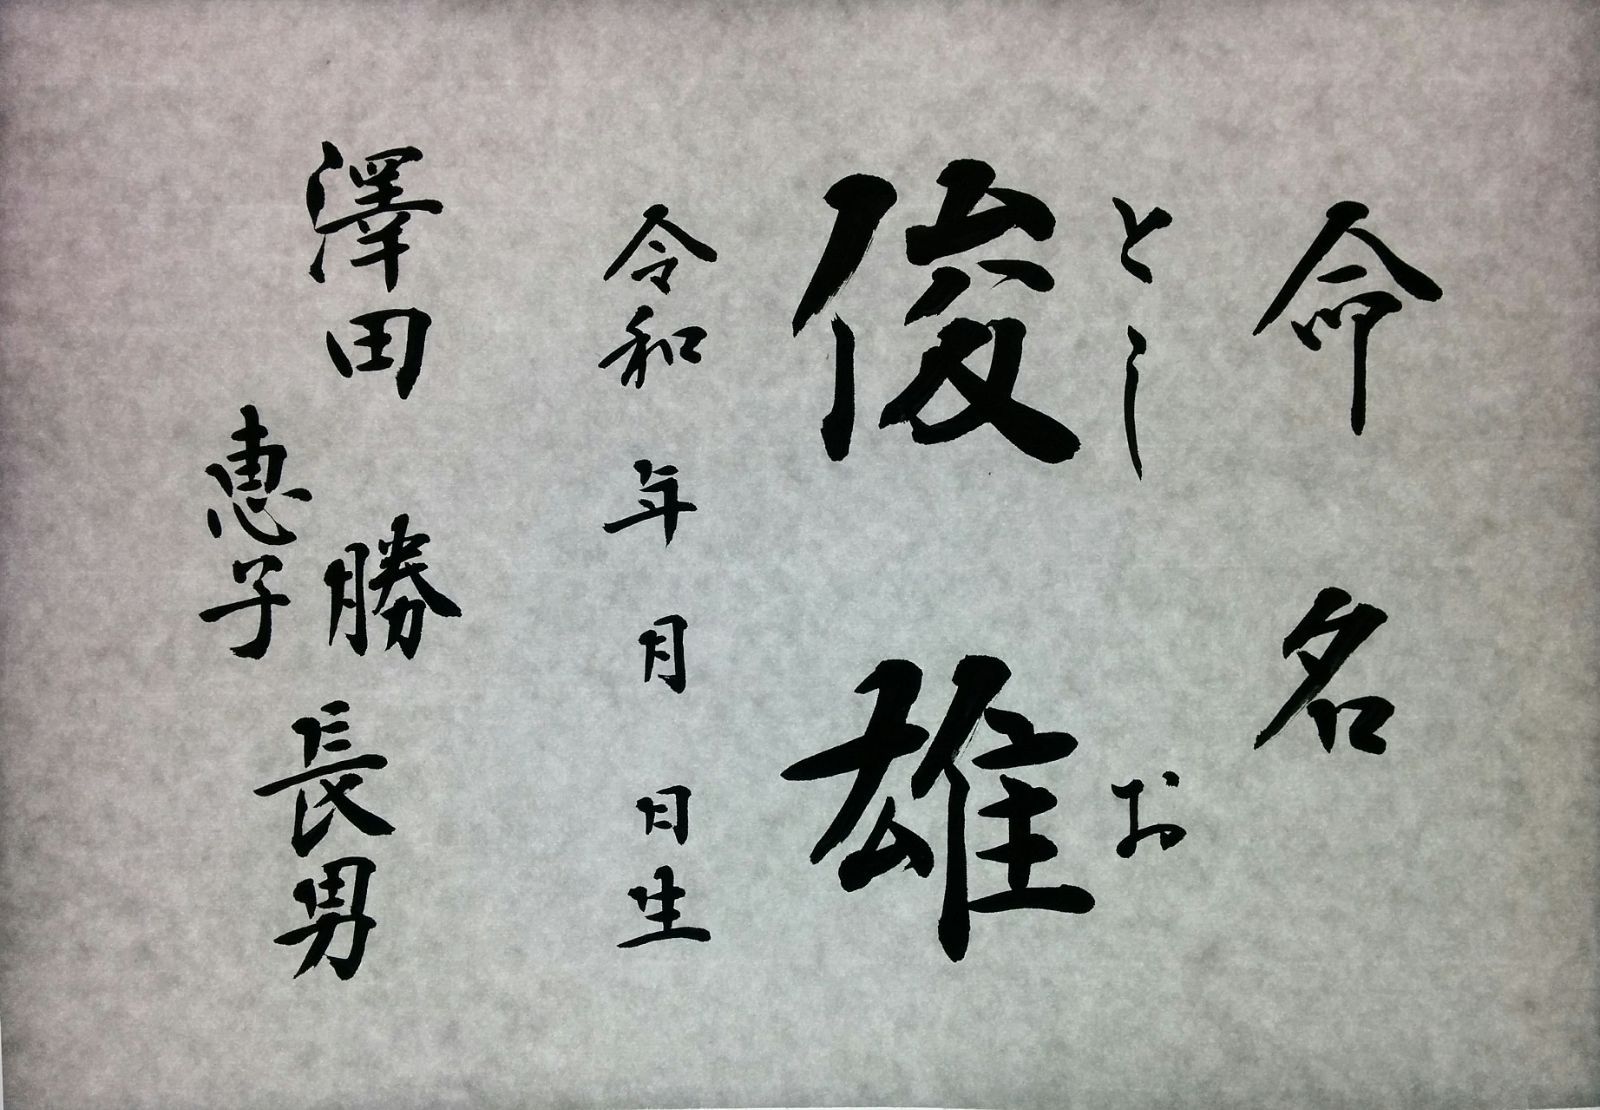 命名
としお
俊雄
令和 年 月 日生
澤田 勝 長男
恵子